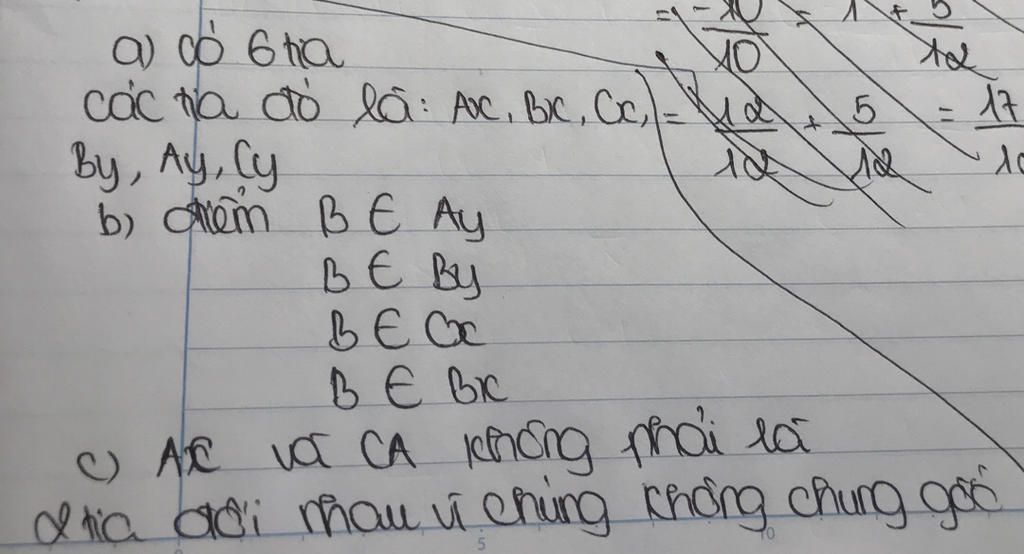 a) có 6 tia
các tia đó là: Ax, Bx, Cx,
By, Ay, Cy
b) điểm B ∈ Ay
B ∈ By
B ∈ Cx
B ∈ Bx
c) AC và CA không phải là
2 tia đối nhau vì chúng không chung gốc
= -10/10 = 1 + 5/12
= 12/12 + 5/12 = 17